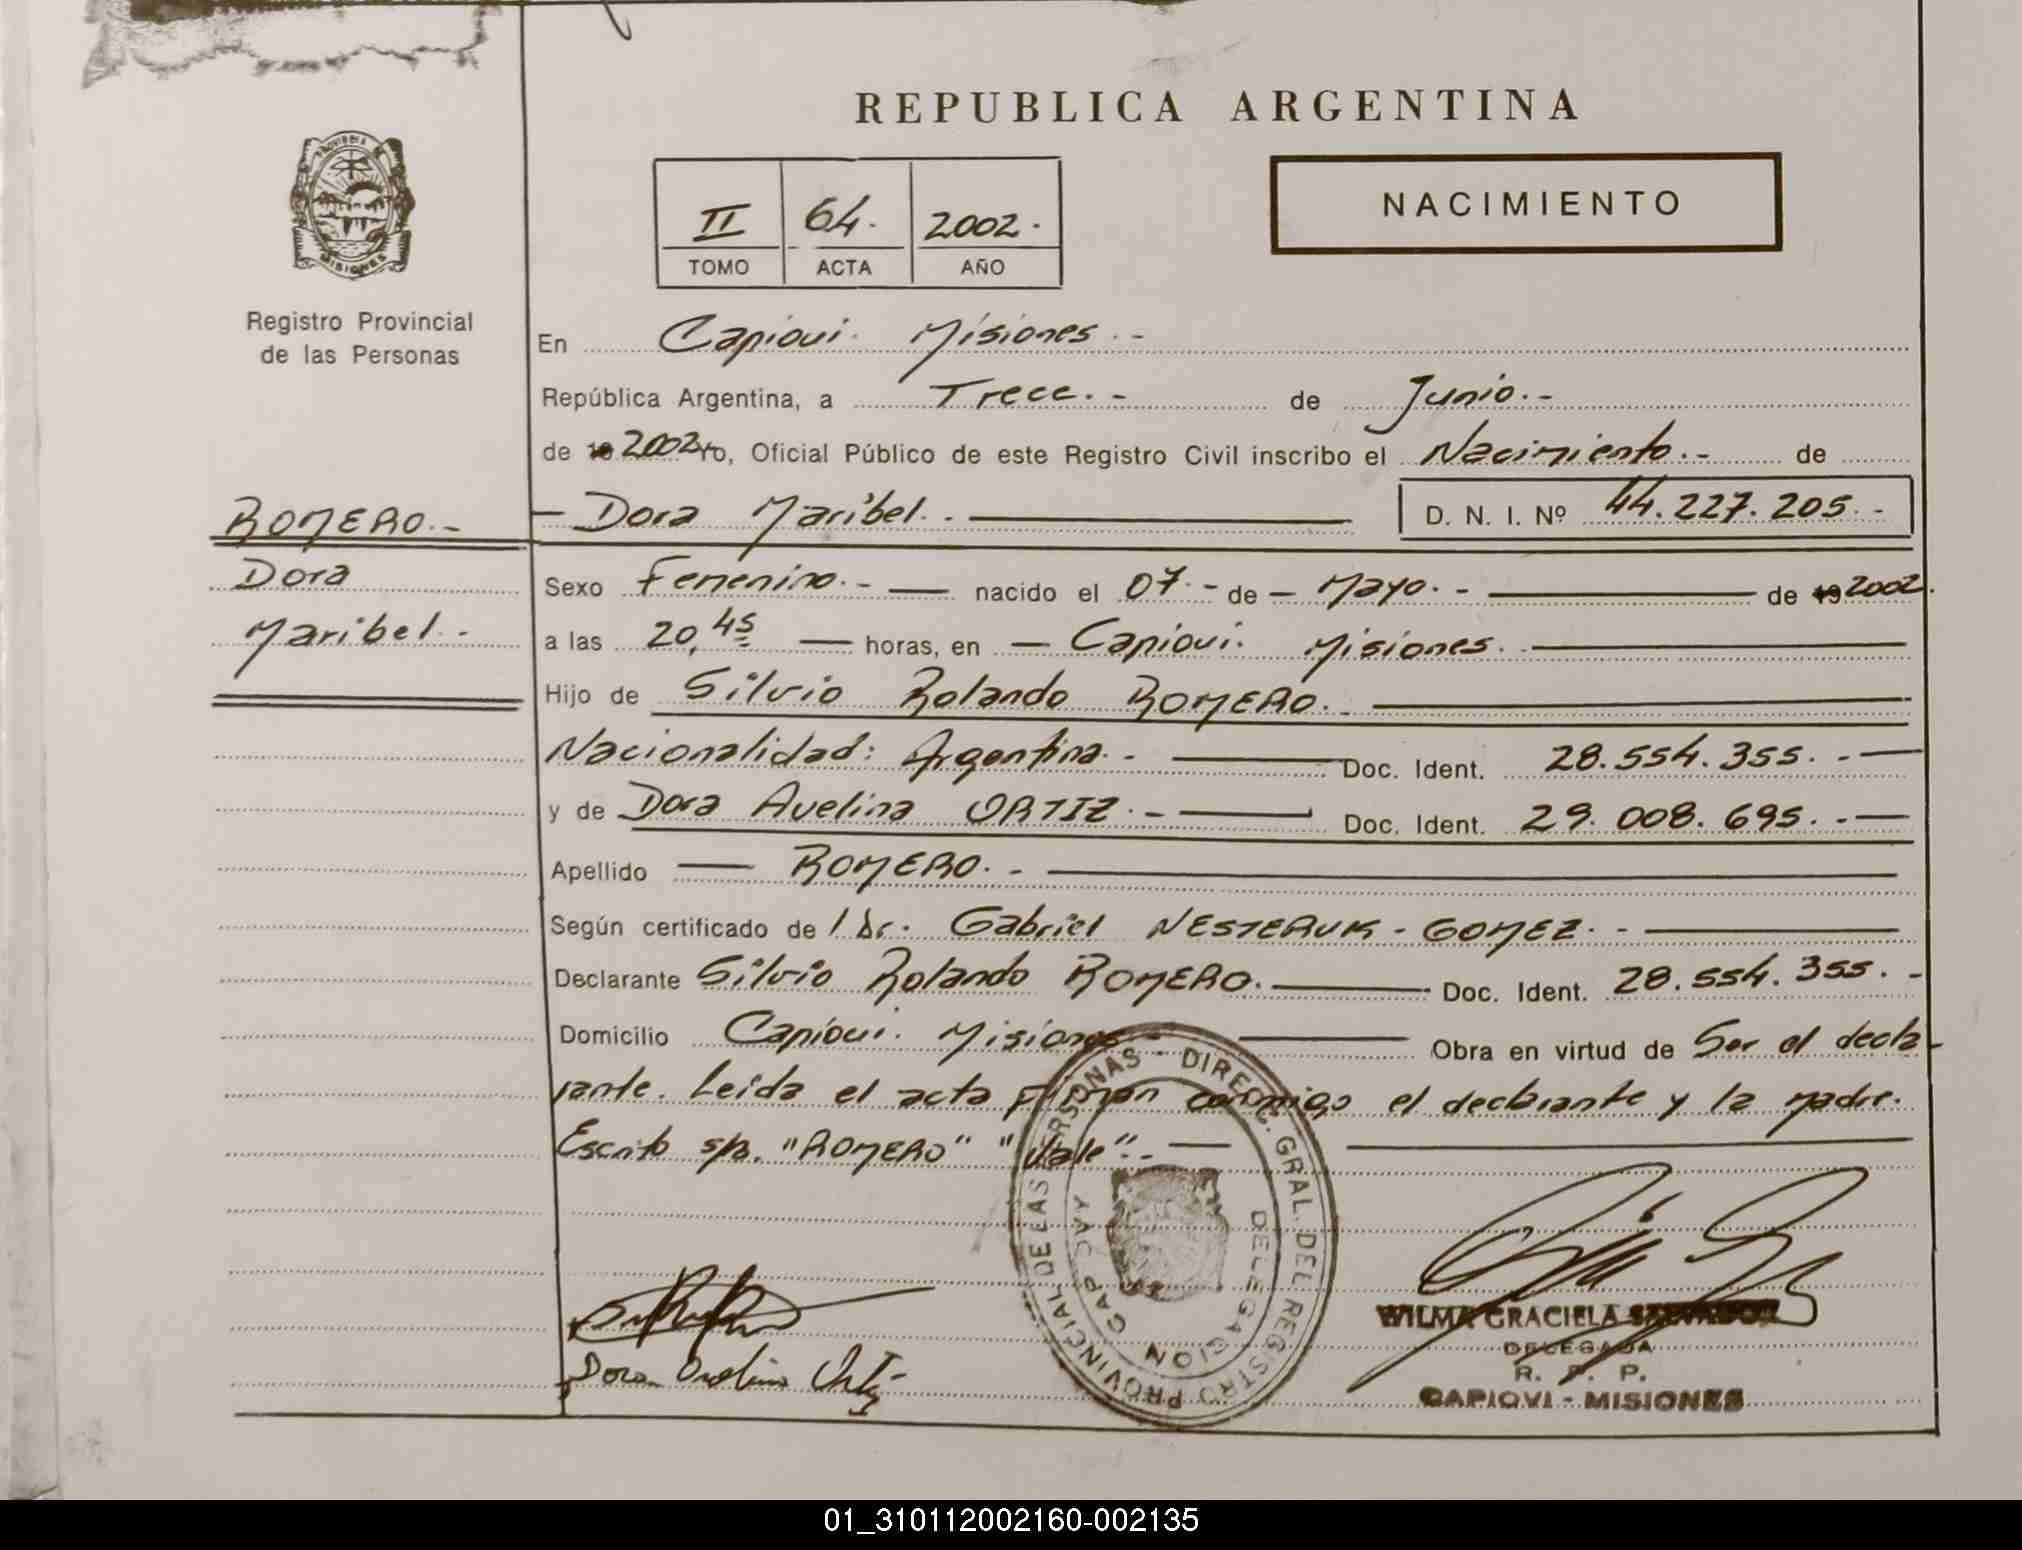 REPUBLICA ARGENTINA
PROVINCIA DE
MISIONES
Registro Provincial
de las Personas
II 64. 2002.
TOMO ACTA AÑO
NACIMIENTO
En Capiovi. Misiones.-
República Argentina, a Trece.- de Junio.-
de 19 2002 yo, Oficial Público de este Registro Civil inscribo el Nacimiento.- de
ROMERO.-
Dora
Maribel.-
- Dora Maribel.- D. N. I. Nº 44.227.205.-
Sexo Femenino.- nacido el 07.- de - Mayo.- de 19 2002.
a las 20,45 horas, en - Capiovi. Misiones.-
Hijo de Silvio Rolando ROMERO.-
Nacionalidad: Argentina.- Doc. Ident. 28.554.355.-
y de Dora Avelina ORTIZ.- Doc. Ident. 29.008.695.-
Apellido ROMERO.-
Según certificado de l Dr. Gabriel NESTERUK - GOMEZ.-
Declarante Silvio Rolando ROMERO. Doc. Ident. 28.554.355.-
Domicilio Capiovi. Misiones - Obra en virtud de Ser el decla
rante. Leida el acta firman conmigo el declarante y la madre.
Escrito s/r. "ROMERO" "Vale".-
DIREC. GRAL. DEL REGISTRO PROVINCIAL DE LAS PERSONAS
DELEGACION
Dora Avelina Ortiz
WILMA GRACIELA
DELEGADA
R. P. P.
CAPIOVI - MISIONES
01_310112002160-002135